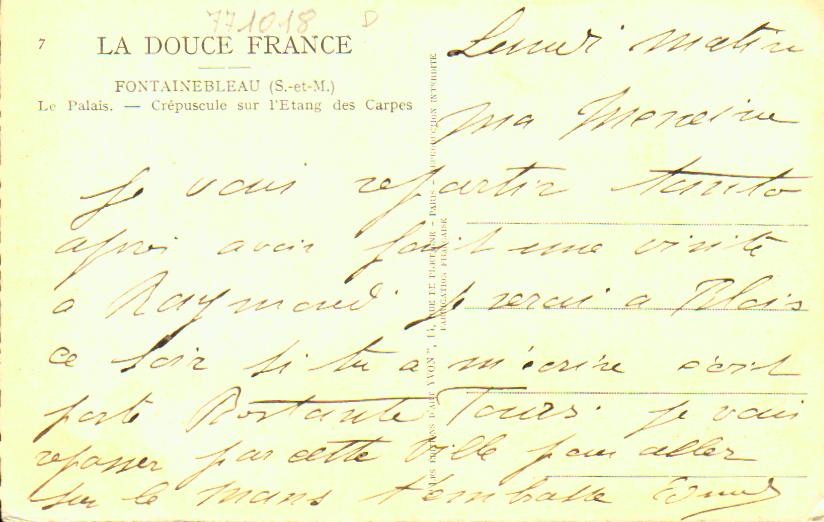 771018 D
7 LA DOUCE FRANCE
FONTAINEBLEAU (S.-et-M.)
Le Palais. — Crépuscule sur l'Etang des Carpes
LES EDITIONS D'ART YVON", 14, RUE DE BRETAGNE - PARIS - REPRODUCTION INTERDITE
FABRICATION FRANÇAISE
Lundi matin
Ma
je vais repartir tanto
apres avoir fait une visite
a Raymond je serai a Blois
ce soir si tu a m'ecrire ecrit
poste Restante Tours. je vais
repasser par cette ville pour aller
sur le Mans t'embrasse